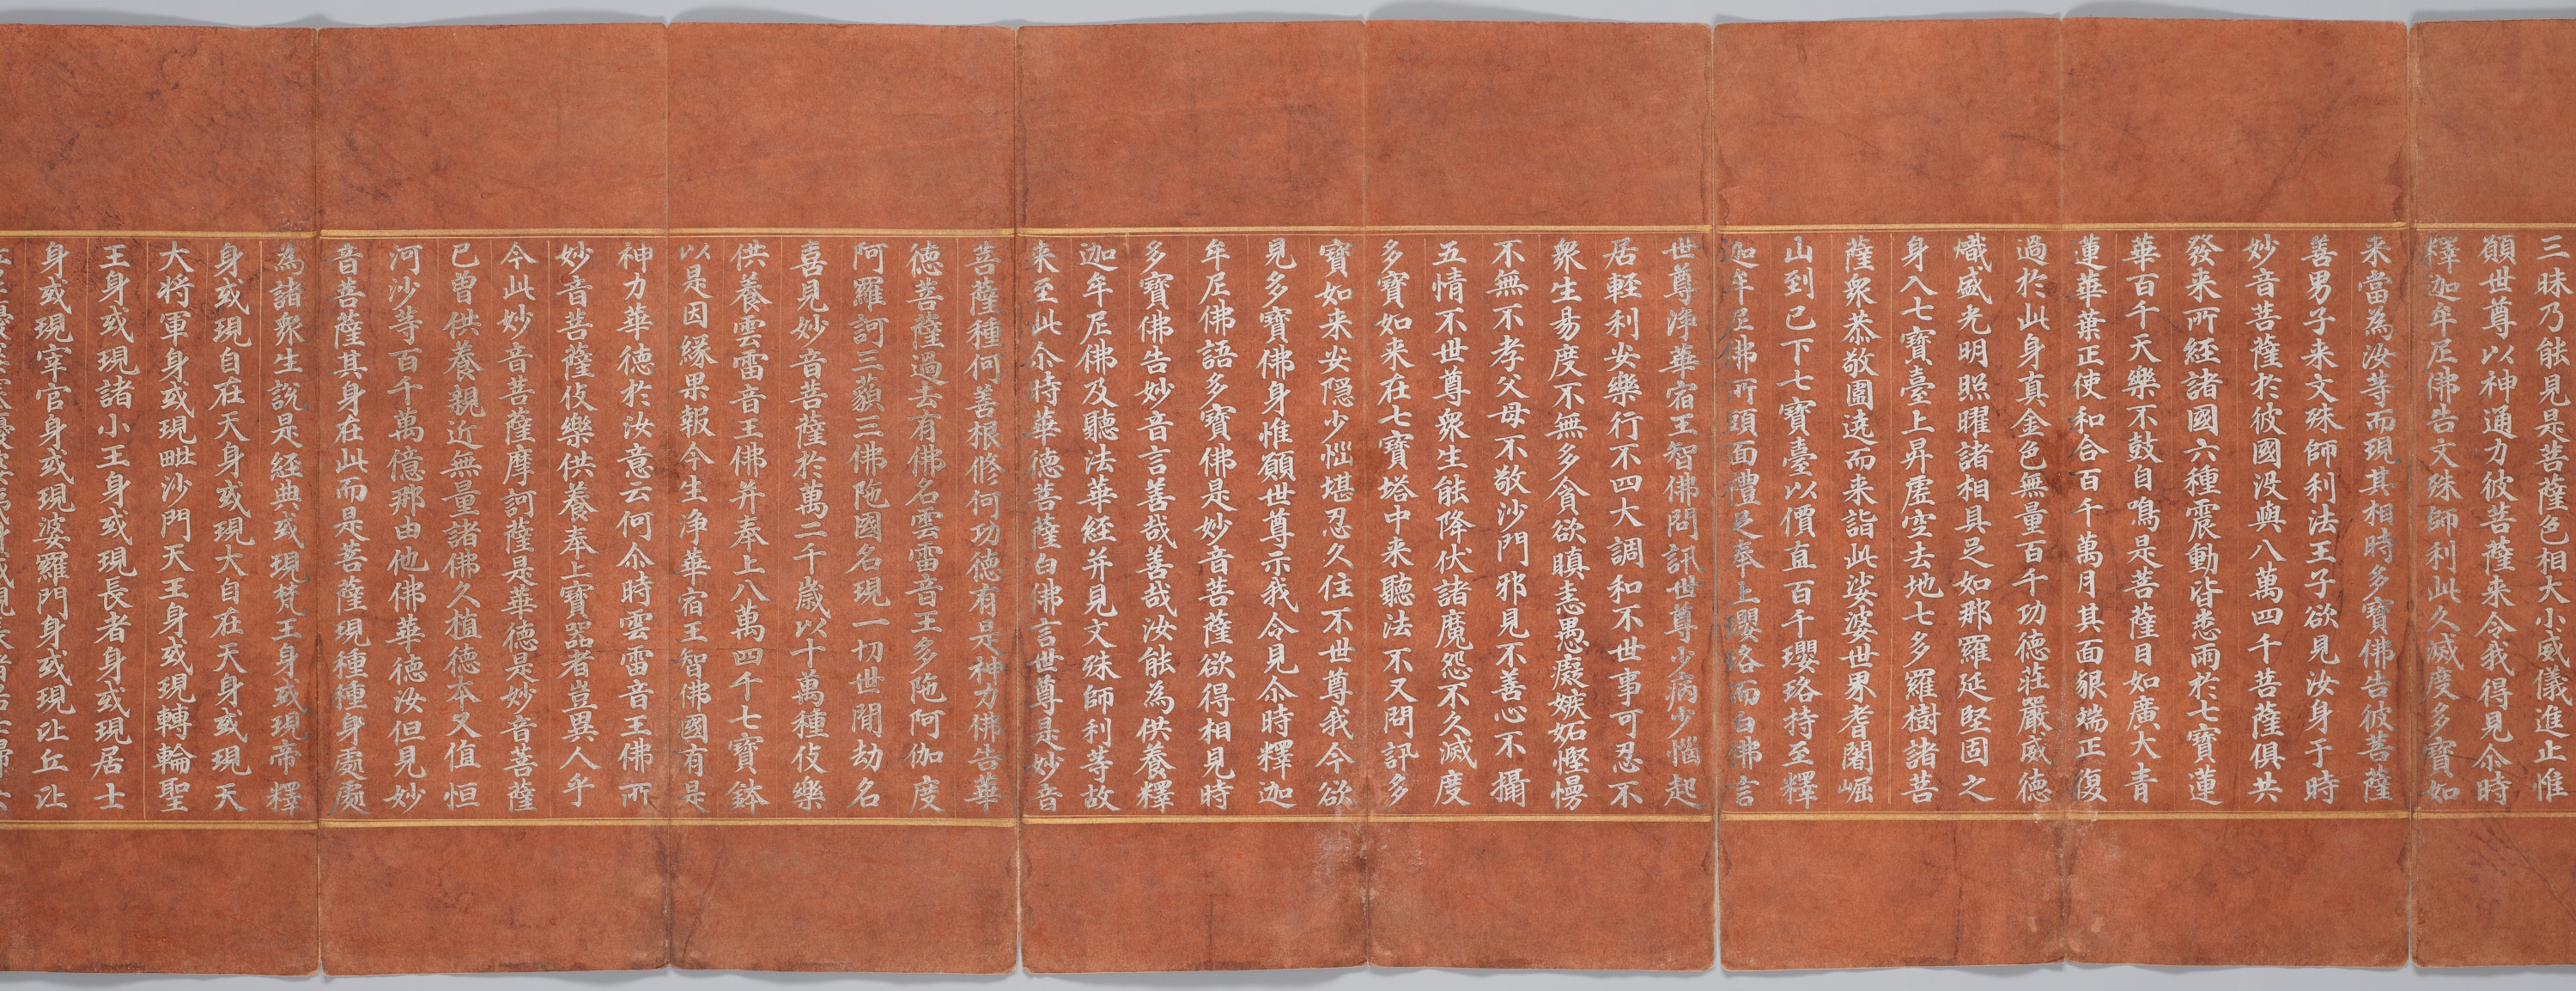 三昧乃能見是菩薩色相大小威儀進止惟
願世尊以神通力彼菩薩来令我得見尒時
釋迦牟尼佛告文殊師利此久滅度多寶如
来當為汝等而現其相時多寶佛告彼菩薩
善男子来文殊師利法王子欲見汝身于時
妙音菩薩於彼國没與八萬四千菩薩俱共
發来所経諸國六種震動皆悉雨於七寶蓮
華百千天樂不鼓自鳴是菩薩目如廣大青
蓮華葉正使和合百千萬月其面貌端正復
過於此身真金色無量百千功德莊嚴威德
熾盛光明照曜諸相具足如那羅延堅固之
身入七寶臺上昇虛空去地七多羅樹諸菩
薩衆恭敬圍遶而来詣此娑婆世界耆闍崛
山到已下七寶臺以價直百千瓔珞持至釋
迦牟尼佛所頭面禮足奉上瓔珞而白佛言
世尊淨華宿王智佛問訊世尊少病少惱起
居輕利安樂行不四大調和不世事可忍不
衆生易度不無多貪欲瞋恚愚癡嫉妬慳慢
不無不孝父母不敬沙門邪見不善心不攝
五情不世尊衆生能降伏諸魔怨不久滅度
多寶如来在七寶塔中来聽法不又問訊多
寶如来安隱少惱堪忍久住不世尊我今欲
見多寶佛身惟願世尊示我令見尒時釋迦
牟尼佛語多寶佛是妙音菩薩欲得相見時
多寶佛告妙音言善哉善哉汝能為供養釋
迦牟尼佛及聽法華経并見文殊師利等故
来至此尒時華德菩薩白佛言世尊是妙音
菩薩種何善根修何功德有是神力佛告華
德菩薩過去有佛名雲雷音王多陁阿伽度
阿羅訶三藐三佛陁國名現一切世間劫名
喜見妙音菩薩於萬二千歲以十萬種伎樂
供養雲雷音王佛并奉上八萬四千七寶鉢
以是因緣果報今生淨華宿王智佛國有是
神力華德於汝意云何尒時雲雷音王佛所
妙音菩薩伎樂供養奉上寶器者豈異人乎
今此妙音菩薩摩訶薩是華德是妙音菩薩
已曾供養親近無量諸佛久植德本又值恒
河沙等百千萬億那由他佛華德汝但見妙
音菩薩其身在此而是菩薩現種種身處處
為諸衆生說是経典或現梵王身或現帝釋
身或現自在天身或現大自在天身或現天
大将軍身或現毗沙門天王身或現轉輪聖
王身或現諸小王身或現長者身或現居士
身或現宰官身或現婆羅門身或現比丘比